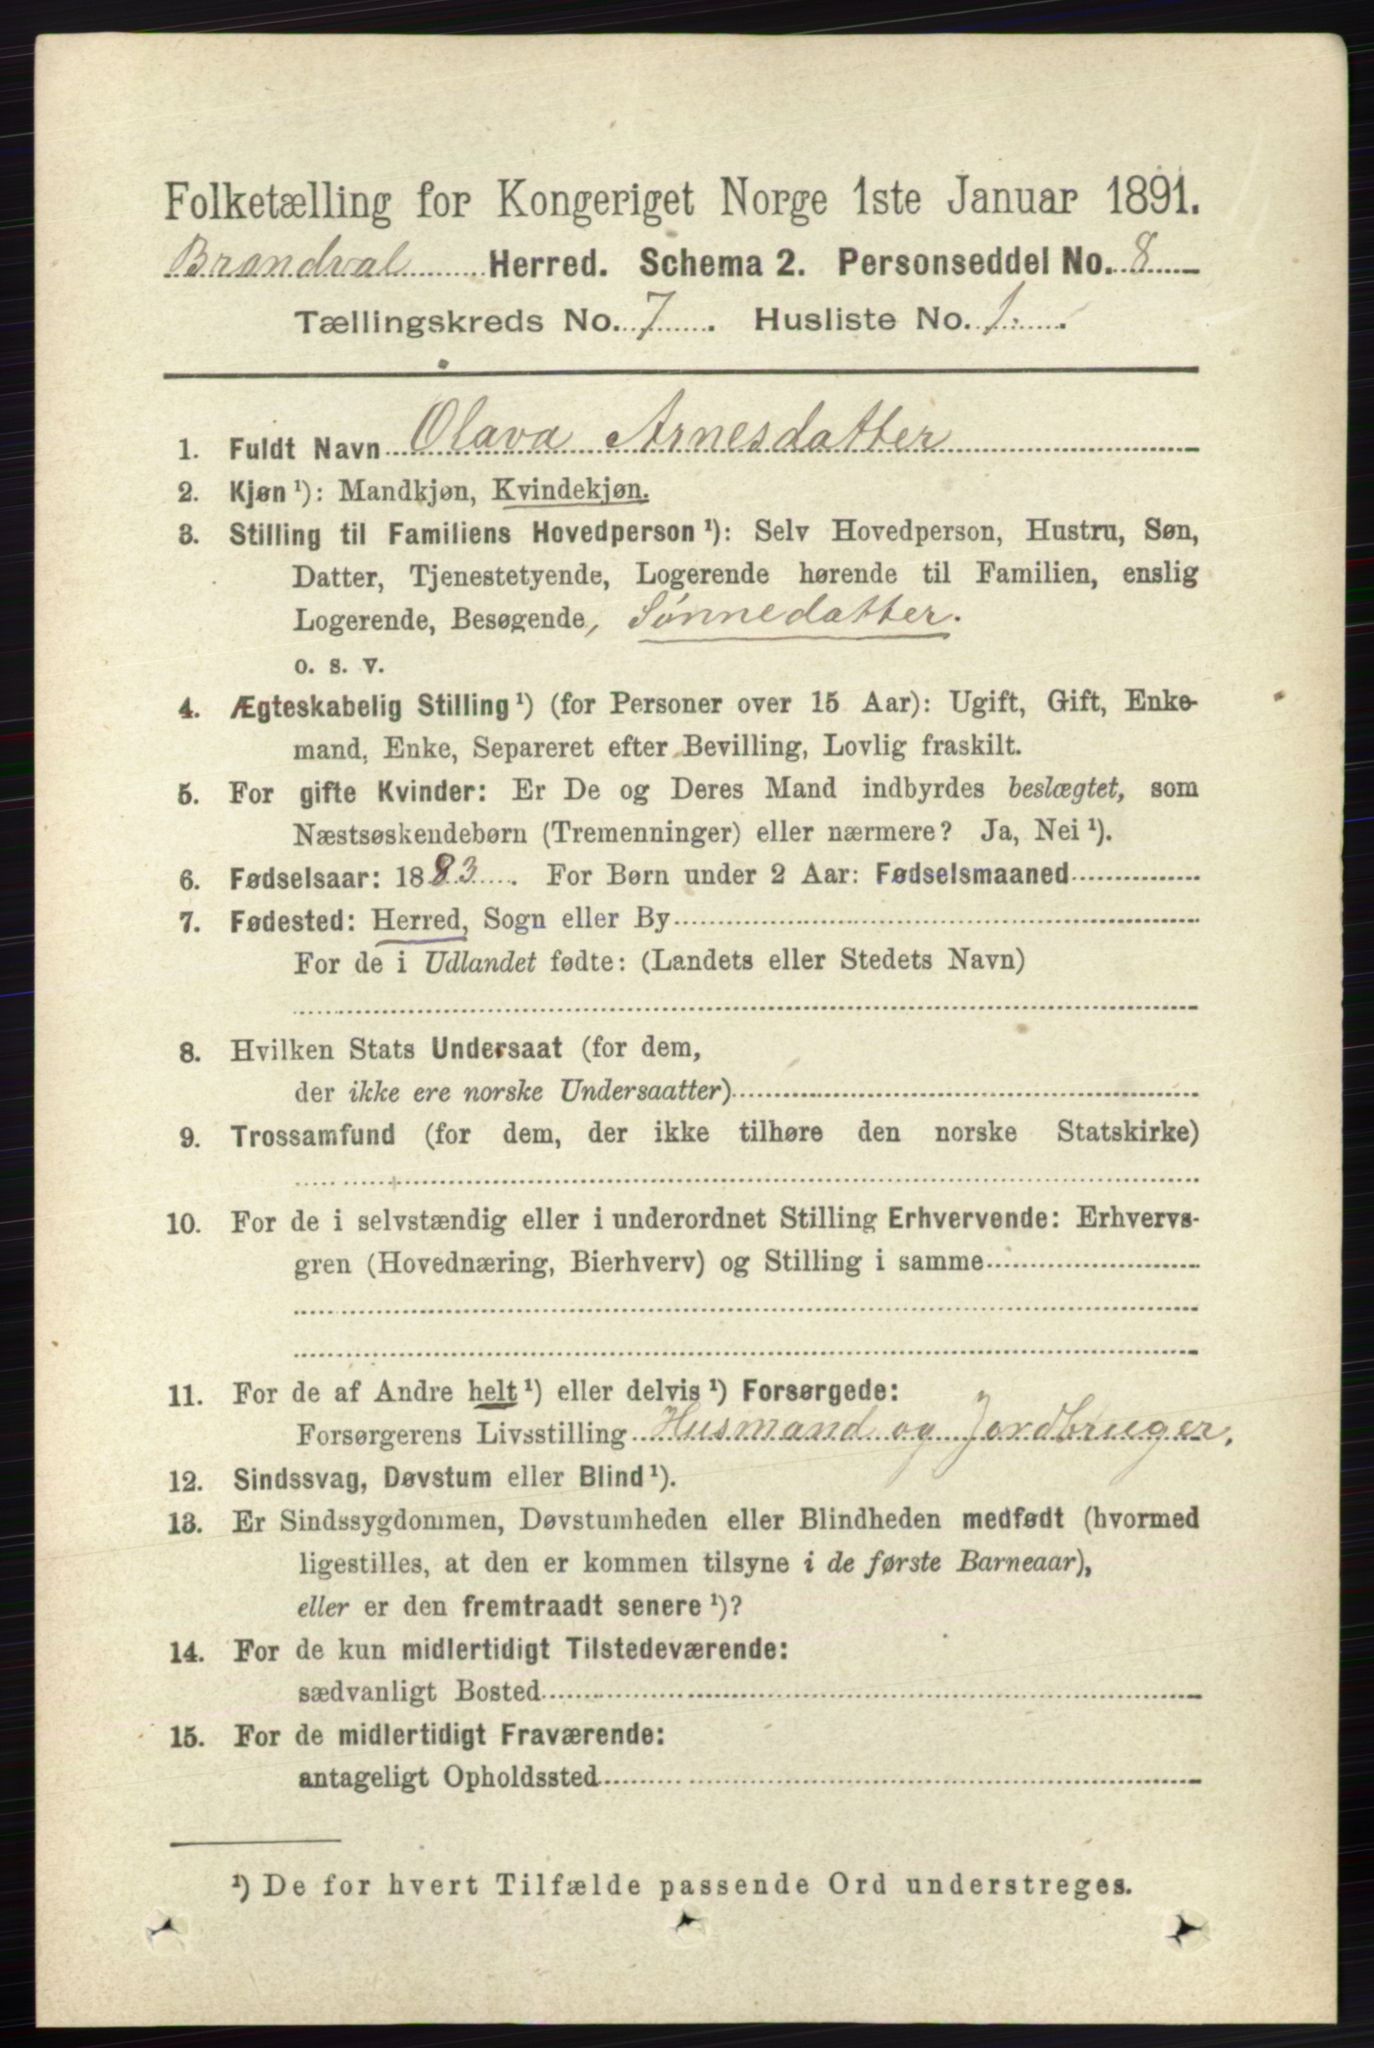 Folketælling for Kongeriget Norge 1ste Januar 1891.
Brandval Herred. Schema 2. Personseddel No. 8
Tællingskreds No. 7. Husliste No. 1.
1. Fuldt Navn Olava Arnesdatter
2. Kjøn ¹): Mandkjøn, Kvindekjøn.
3. Stilling til Familiens Hovedperson ¹): Selv Hovedperson, Hustru, Søn,
Datter, Tjenestetyende, Logerende hørende til Familien, enslig
Logerende, Besøgende, Sønnedatter.
o. s. v.
4. Ægteskabelig Stilling ¹) (for Personer over 15 Aar): Ugift, Gift, Enke-
mand, Enke, Separeret efter Bevilling, Lovlig fraskilt.
5. For gifte Kvinder: Er De og Deres Mand indbyrdes beslægtet, som
Næstsøskendebørn (Tremenninger) eller nærmere? Ja, Nei ¹).
6. Fødselsaar: 1883. For Børn under 2 Aar: Fødselsmaaned
7. Fødested: Herred, Sogn eller By
For de i Udlandet fødte: (Landets eller Stedets Navn)
8. Hvilken Stats Undersaat (for dem,
der ikke ere norske Undersaatter)
9. Trossamfund (for dem, der ikke tilhøre den norske Statskirke)
10. For de i selvstændig eller i underordnet Stilling Erhvervende: Erhvervs-
gren (Hovednæring, Bierhverv) og Stilling i samme
11. For de af Andre helt ¹) eller delvis ¹) Forsørgede:
Forsørgerens Livsstilling Husmand og Jordbruger.
12. Sindssvag, Døvstum eller Blind ¹).
13. Er Sindssygdommen, Døvstumheden eller Blindheden medfødt (hvormed
ligestilles, at den er kommen tilsyne i de første Barneaar),
eller er den fremtraadt senere ¹)?
14. For de kun midlertidigt Tilstedeværende:
sædvanligt Bosted
15. For de midlertidigt Fraværende:
antageligt Opholdssted
¹) De for hvert Tilfælde passende Ord understreges.